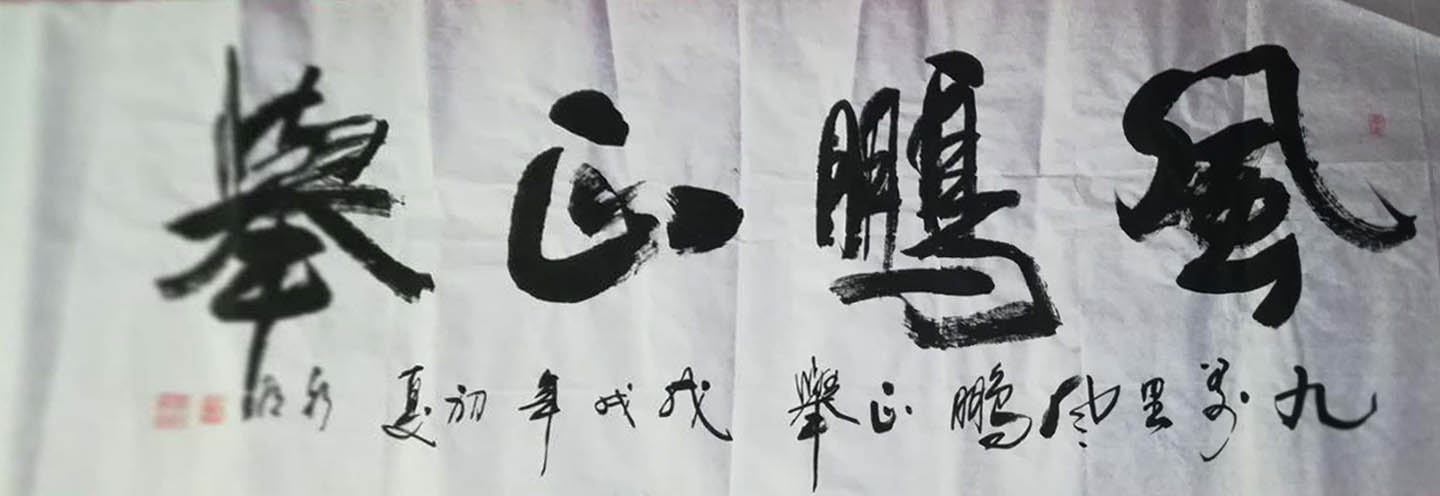 風鵬正舉
九万里風鵬正舉 戊戌年初夏